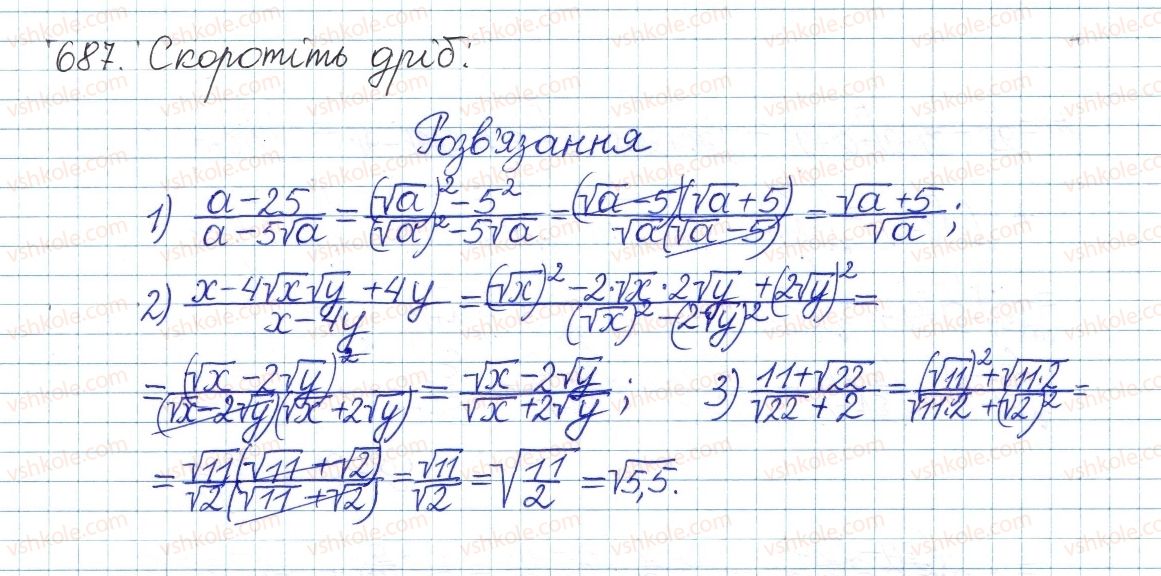 687. Скоротіть дріб:
Розв'язання
1) (a-25)/(a-5√a) = ((√a)²-5²)/((√a)²-5√a) = ((√a-5)(√a+5))/(√a(√a-5)) = (√a+5)/√a;
2) (x-4√x√y+4y)/(x-4y) = ((√x)²-2·√x·2√y+(2√y)²)/((√x)²-(2√y)²) =
= (√x-2√y)²/((√x-2√y)(√x+2√y)) = (√x-2√y)/(√x+2√y); 3) (11+√22)/(√22+2) = ((√11)²+√11·2)/(√11·2+(√2)²) =
= (√11(√11+√2))/(√2(√11+√2)) = √11/√2 = √(11/2) = √5,5.